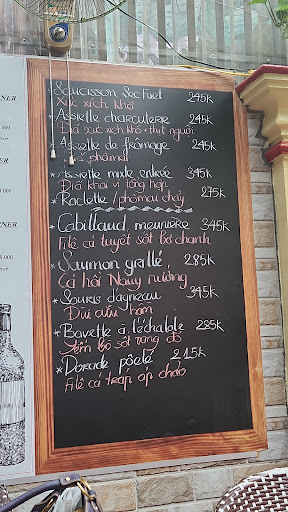 Saucisson Sec Fuet 245K
Xúc xích khô
* Assiette charcuterie 245K
Đĩa xúc xích khô + thịt nguội
* Assiette de fromage 245K
phomai
* Assiette mixte entrée 345K
Đĩa khai vị tổng hợp
* Raclette / phômai chảy 275K
* Cabillaud meunière 345K
Filê cá tuyết sốt bơ chanh
* Saumon grillé 285K
Cá hồi Nauy nướng
* Souris d'agneau 345K
Đùi cừu hầm
* Bavette à l'échalote 285K
* Dorade poêlé 215K
Filê cá tráp áp chảo
NER
NER